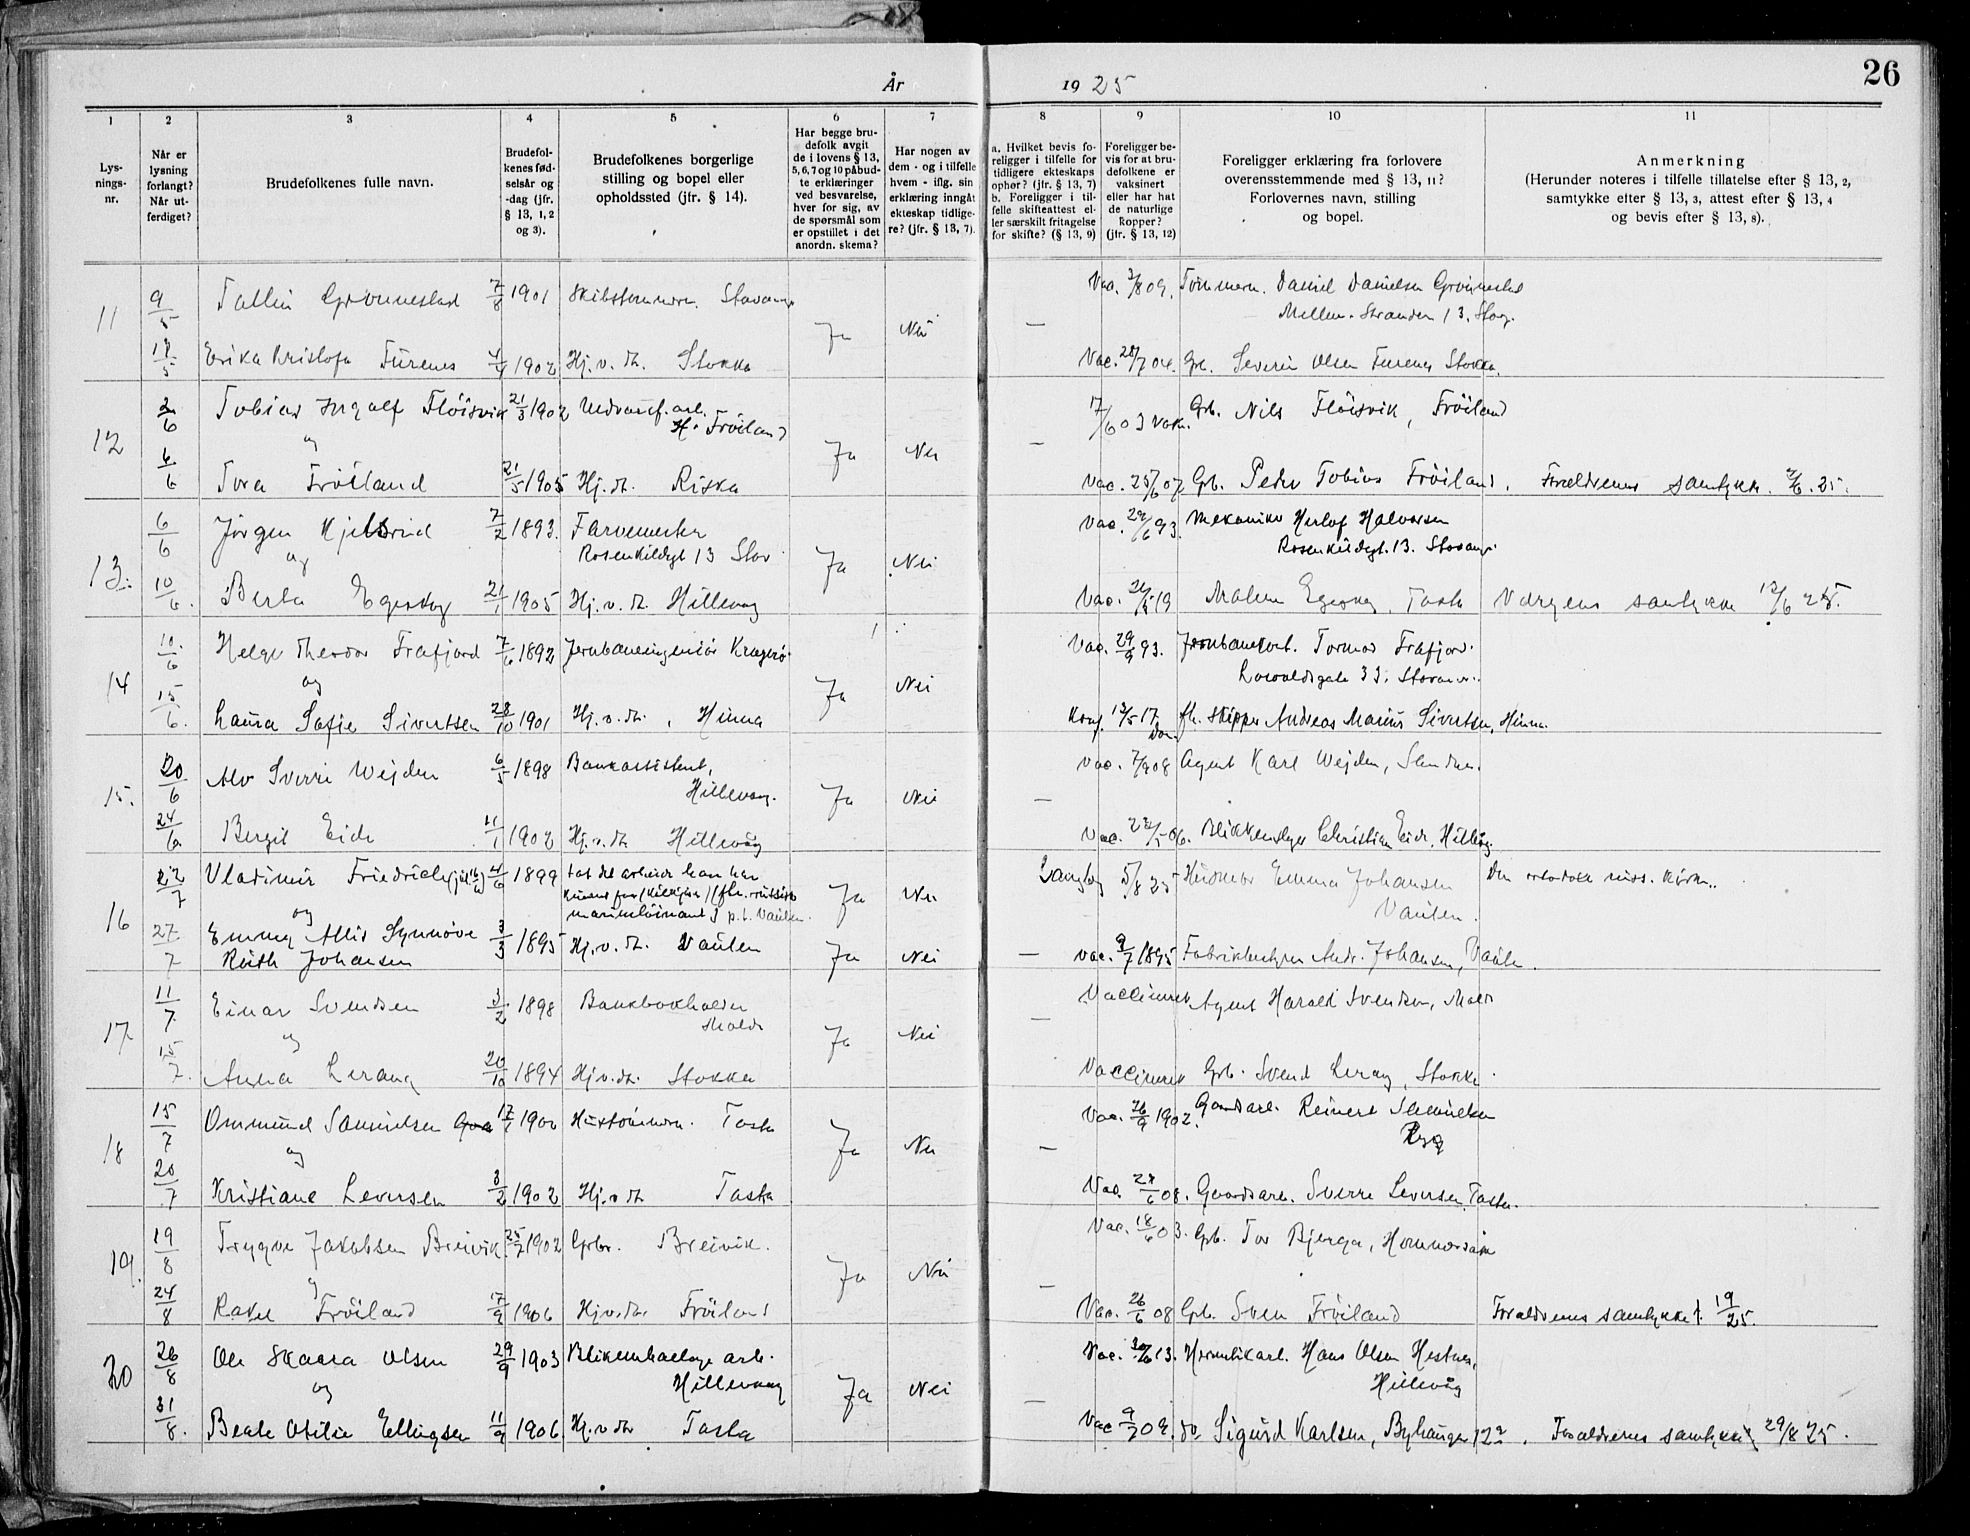 År 1925
26
1 2 3 4 5 6 7 8 9 10 11
Lysningsnr.
Når er lysning forlangt? Når utferdiget?
Brudefolkenes fulle navn.
Brudefolkenes fødselsår og -dag (jfr. § 13, 1, 2 og 3).
Brudefolkenes borgerlige stilling og bopel eller opholdssted (jfr. § 14).
Har begge brudefolk avgit de i lovens § 13, 5, 6, 7 og 10 påbudte erklæringer ved besvarelse, hver for sig, av de spørsmål som er opstillet i det anordn. skema?
Har nogen av dem - og i tilfelle hvem - iflg. sin erklæring inngåt ekteskap tidligere? (jfr. § 13, 7).
a. Hvilket bevis foreligger i tilfelle for tidligere ekteskaps ophør? (jfr. § 13, 7) b. Foreligger i tilfelle skifteattest eller særskilt fritagelse for skifte? (§ 13, 9)
Foreligger bevis for at brudefolkene er vaksinert eller har hat de naturlige kopper? (jfr. § 13, 12)
Foreligger erklæring fra forlovere overensstemmende med § 13, 11? Forlovernes navn, stilling og bopel.
Anmerkning (Herunder noteres i tilfelle tillatelse efter § 13, 2, samtykke efter § 13, 3, attest efter § 13, 4 og bevis efter § 13, 8).
11 9/5 7/8 1901 Skibstømmerm. Ja Nei Vac. Tømmerm. Daniel Danielsen
13. Stavg.
Erika Kristofa Furenes 1902 Hj.v.dr. Stokka Vac. 28/7 04. Gb. Severin Olsen Furenes Stokka.
12 2/6 Tobias Ingolf Flöisvik 21/3 1902 H. Fröiland Ja Nei 17/6 03 Vakc. Gb. Nils Flöisvik, Fröiland
og
6/6 Tora Fröiland 21/5 1905 Hj.dt. Riska Vac. 25/6 07 Gb. Peder Tobias Fröiland. Foreldrenes samtykke 2/6. 25.
13. 6/6 Jörgen 7/2 1893. Farvemester Ja Nei Vac. 29/6 93. Mekaniker Herlof Halvorsen
og Rosenkildegt 13 Stav. Rosenkildegt. 13. Stavanger
10/6. Berta Egeskog 21/1 1905 Hj.v.dt. Hillevaag Vac. 19 Malene Egeskog, Tasta Værgens samtykke 12/6 25.
14 10/6 Helge Theodor Trafjord 7/6 1892 Jernbaneingeniör Kragerö Ja Nei Vac. 29/9 93. Tormod Trafjord
og 33, Stavanger
15/6. Laura Sofie Sivertsen 28/10 1901 Hj.v.dt., Hinna Konf. 13/5 17. fh. Skipper Andreas Marius Sivertsen, Hinna.
15. 20/6 Alv Sverre Wejden 6/5 1898 Bankassistent, Hillevaag. Ja Nei Vac. 7/9 08 Agent Karl Wejden,
24/6 Bergit Eide 11/1 1902 Hj.v.dt Hillevåg Vac. 06. Blikkenslager Christian Eide, Hillevåg.
16 22/7 Vladimir Friedrich 4/6 1899 tar det arbeide han kan Ja Nei 5/8 25 Emma Johansen Den ortodokse russ. kirke..
og p.t. Vaulen. Vaulen.
27/7 Emmy Allis Synnöve 3/3 1895 Hj.v.dt. Vaulen Ja Nei Vac. 9/7 1895 Fabrikbestyrer Andr. Johansen, Vaulen.
Ruth Johansen
17 11/7 Einar Svendsen 3/2 1898 Bankbokholder Molde Ja Nei Vaccineret Agent Harald Svendsen, Molde
og
15/7. Anna Lerang 20/10 1894 Hj.v.dt. Stokka Vaccineret Gb. Svend Lerang, Stokka.
18 15/7 Ommund Samuelsen 1900 Hustömmerm. Tasta Ja Nei Vac. 26/9 1902. Gaardsarb. Reinert Samuelsen
og
20/7 Kristiane Leversen 3/2 1902 Hj.v.dt Tasta Vac. 08. Gaardsarb. Sverre Leversen Tasta.
19. 19/8 Trygve Jakobsen Breivik 1902 Gbr. Breivik. Ja Nei Vac. 18/6 03. Gb. Tor Bjerga, Hommersåk
og
24/8 Rakel Fröiland 1906 Hj.v.dt. Fröiland Vac. 26/6 08 Gb. Sven Fröiland Foreldrenes samtykke 19/25.
20 26/8 Ole Skaara Olsen 29/9 1903 Blikemballage arb. Hillevaag Ja Nei Vac. 13. Hermetikarb. Hans Olsen Hestnes, Hillevåg
og
31/8. Beate Otilie Ellingsen 11/9 1906. Hj.v.dt Tasta Vac 09. Sigurd Karlsen, Byhaugen 12. Foreldrenes samtykke 29/8 25.